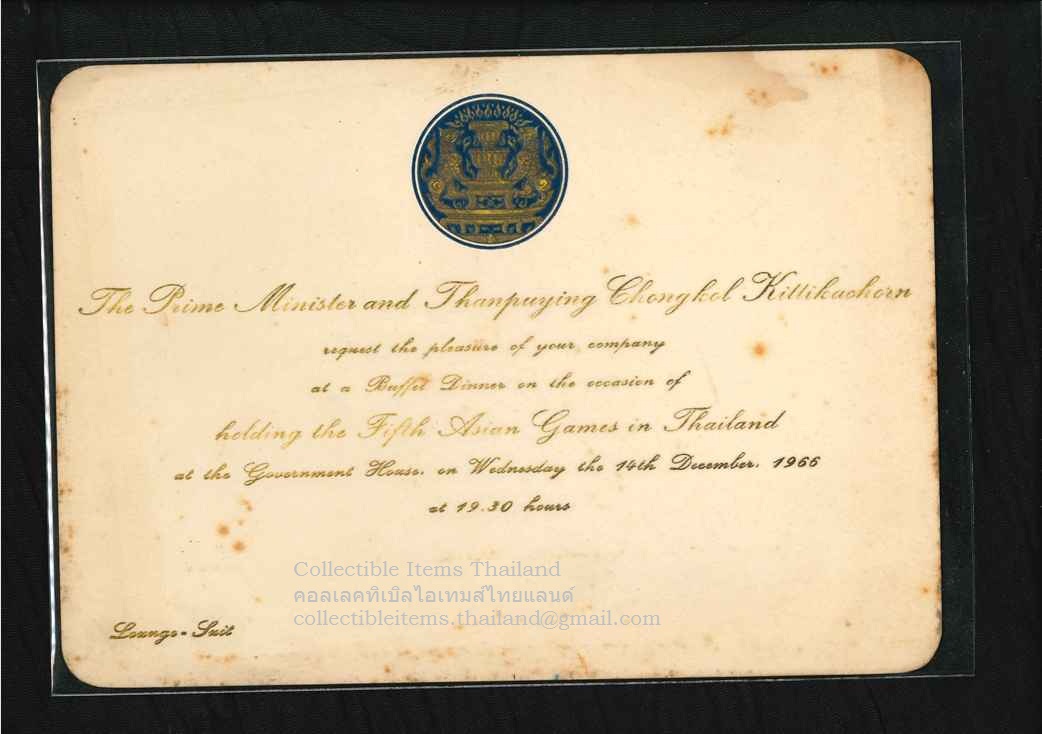 The Prime Minister and Thanpuying Chongkol Kittikachorn
request the pleasure of your company
at a Buffet Dinner on the occasion of
holding the Fifth Asian Games in Thailand
at the Government House, on Wednesday the 14th December, 1966
at 19.30 hours
Collectible Items Thailand
คอลเลคทิเบิลไอเทมส์ไทยแลนด์
collectibleitems.thailand@gmail.com
Lounge-Suit